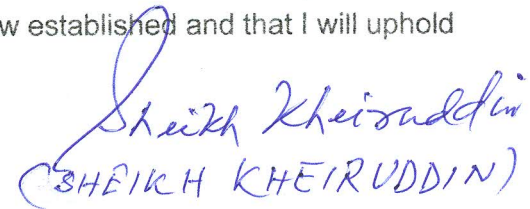 w established and that I will uphold
Sheikh Kheiruddin
(SHEIKH KHEIRUDDIN)